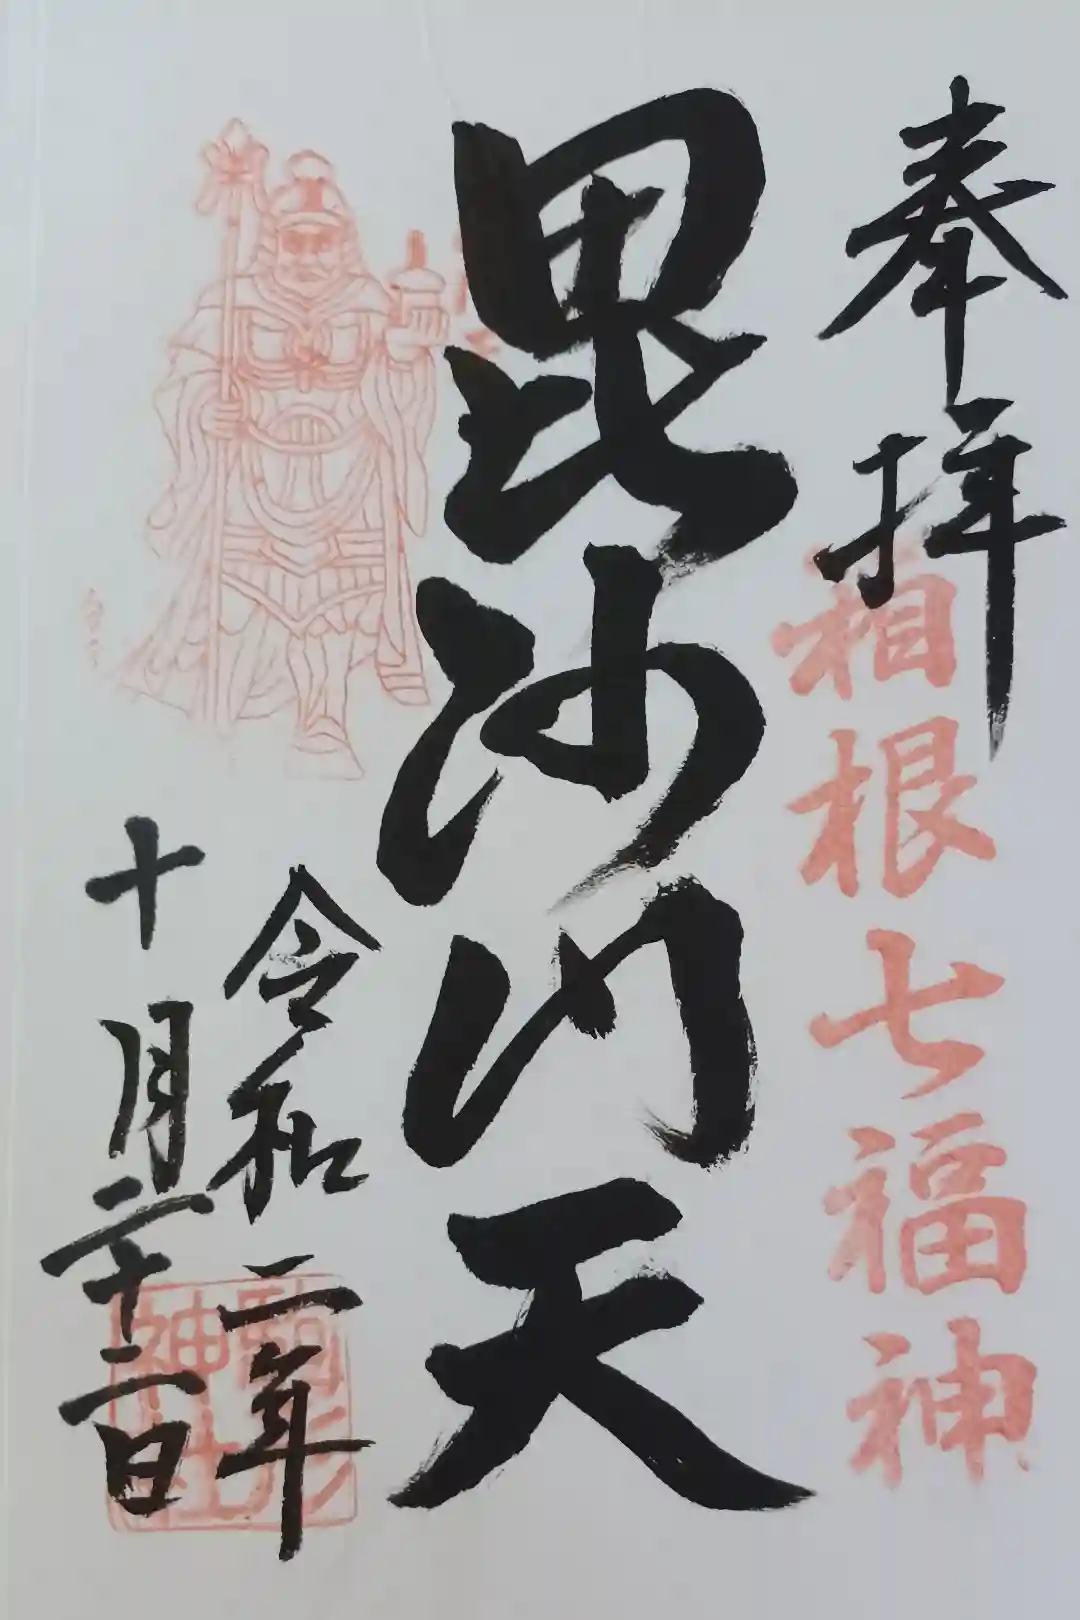 奉拝
箱根七福神
毘沙门天
令和二年
十月二十二日
駒形
神社